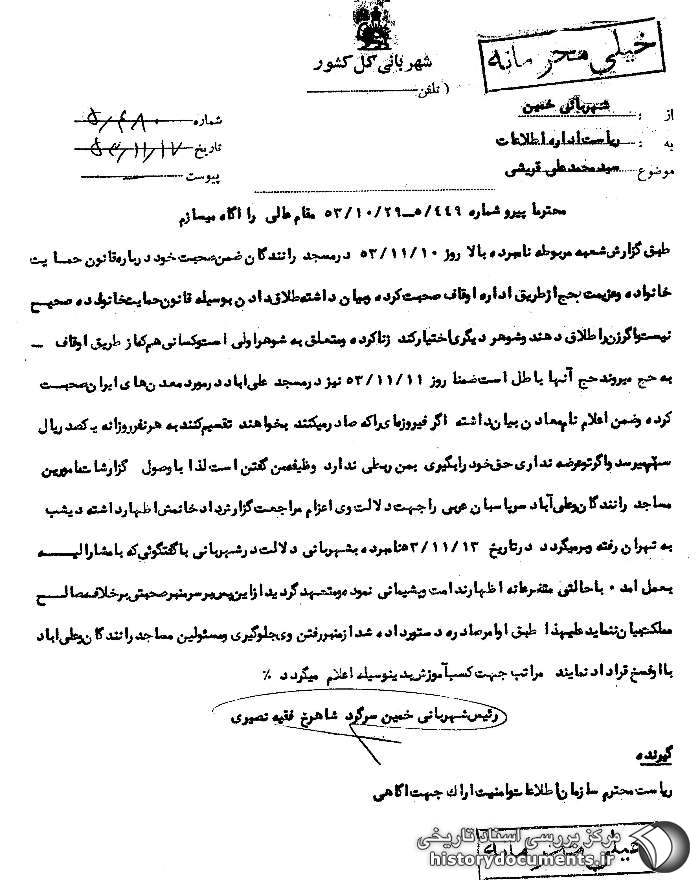 خیلی محرمانه
شهربانی کل کشور
( تلفن
از : شهربانی خمین
به : ریاست اداره اطلاعات
موضوع سیدمحمدعلی قریشی
شماره ۵/۴۸۰
تاریخ ۵۳/۱۱/۱۷
پیوست
محترما پیرو شماره ۵/۴۴۹-۵۳/۱۰/۲۹ مقام عالی را آگاه میسازم
طبق گزارش شعبه مربوطه نامبرده بالا روز ۵۳/۱۱/۱۰ در مسجد رانندگان ضمن صحبت خود درباره قانون حمایت
خانواده و عزیمت بحج از طریق اداره اوقاف صحبت کرده و بیان داشته طلاق دادن بوسیله قانون حمایت خانواده صحیح
نیست و اگر زن را طلاق دهند و شوهر دیگری اختیار کند زنا کرده و متعلق به شوهر اولی است و کسانی هم که از طریق اوقاف
به حج میروند حج آنها باطل است ضمنا روز ۵۳/۱۱/۱۱ نیز در مسجد علی اباد در مورد معدن های ایران صحبت
کرده و ضمن اعلام نام معادن بیان داشته اگر فیروزه ای راکه صادر میکنند بخواهند تقسیم کنند به هر نفر روزانه یکصد ریال
سهم میرسد و اگر تو عرضه نداری حق خود را بگیری بمن ربطی ندارد وظیفه من گفتن است لذا با وصول گزارشات مامورین
مساجد رانندگان و علی آباد سرپاسبان عربی را جهت دلالت وی اعزام مراجعت گزارش داد خانمش اظهار داشته دیشب
به تهران رفته و برمیگردد در تاریخ ۵۳/۱۱/۱۳ نامبرده بشهربانی دلالت در شهربانی با گفتگوئی که با مشارالیه
بعمل امد ٠ با حالتی متضرعانه اظهار ندامت و پشیمانی نموده و متعهد گردید از این پس بر سر منبر صحبتی برخلاف مصالح
مملکت بیان ننماید علیهذا طبق اوامر صادره دستور داده شد از منبر رفتن وی جلوگیری و مسئولین مساجد رانندگان و علی اباد
با او فسخ قرارداد نمایند مراتب جهت کسب آموزش بدینوسیله اعلام میگردد ٪
رئیس شهربانی خمین سرگرد شاهرخ فقیه نصیری
گیرنده
ریاست محترم سازمان اطلاعات و امنیت اراک جهت اگاهی
خیلی محرمانه
مرکز بررسی اسناد تاریخی
historydocuments.ir